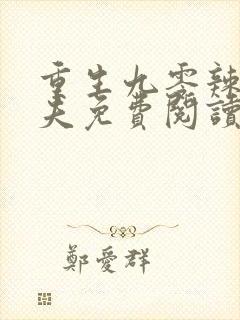 重生九零辣
夫免費閱讀
鄭愛群